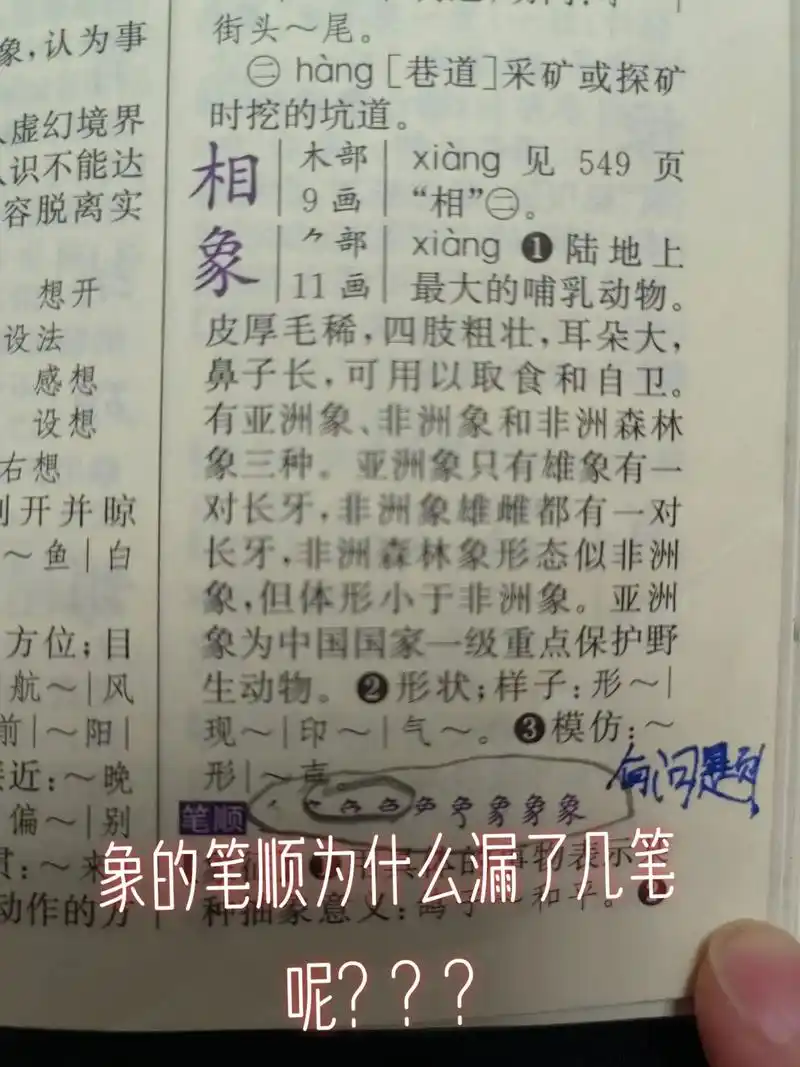 象,认为事
虚幻境界
认识不能达
容脱离实
想开
设法
感想
设想
右想
开并晾
～鱼|白
方位;目
航～|风
前|～阳|
接近:～晚
偏～|别
～来
动作的方
街头～尾。
㊁ hàng [巷道]采矿或探矿
时挖的坑道。
相 木部 9画 xiàng 见 549 页
“相”㊁。
象 ⺈部 11画 xiàng ❶陆地上
最大的哺乳动物。
皮厚毛稀,四肢粗壮,耳朵大,
鼻子长,可用以取食和自卫。
有亚洲象、非洲象和非洲森林
象三种。亚洲象只有雄象有一
对长牙,非洲象雄雌都有一对
长牙,非洲森林象形态似非洲
象,但体形小于非洲象。亚洲
象为中国国家一级重点保护野
生动物。❷形状;样子:形～|
现～|印～|气～。❸模仿:～
形|～声。
有问题
笔顺
象的笔顺为什么漏了几笔
事物表示
种抽象意义:鸽子～和平。❷
呢？？？